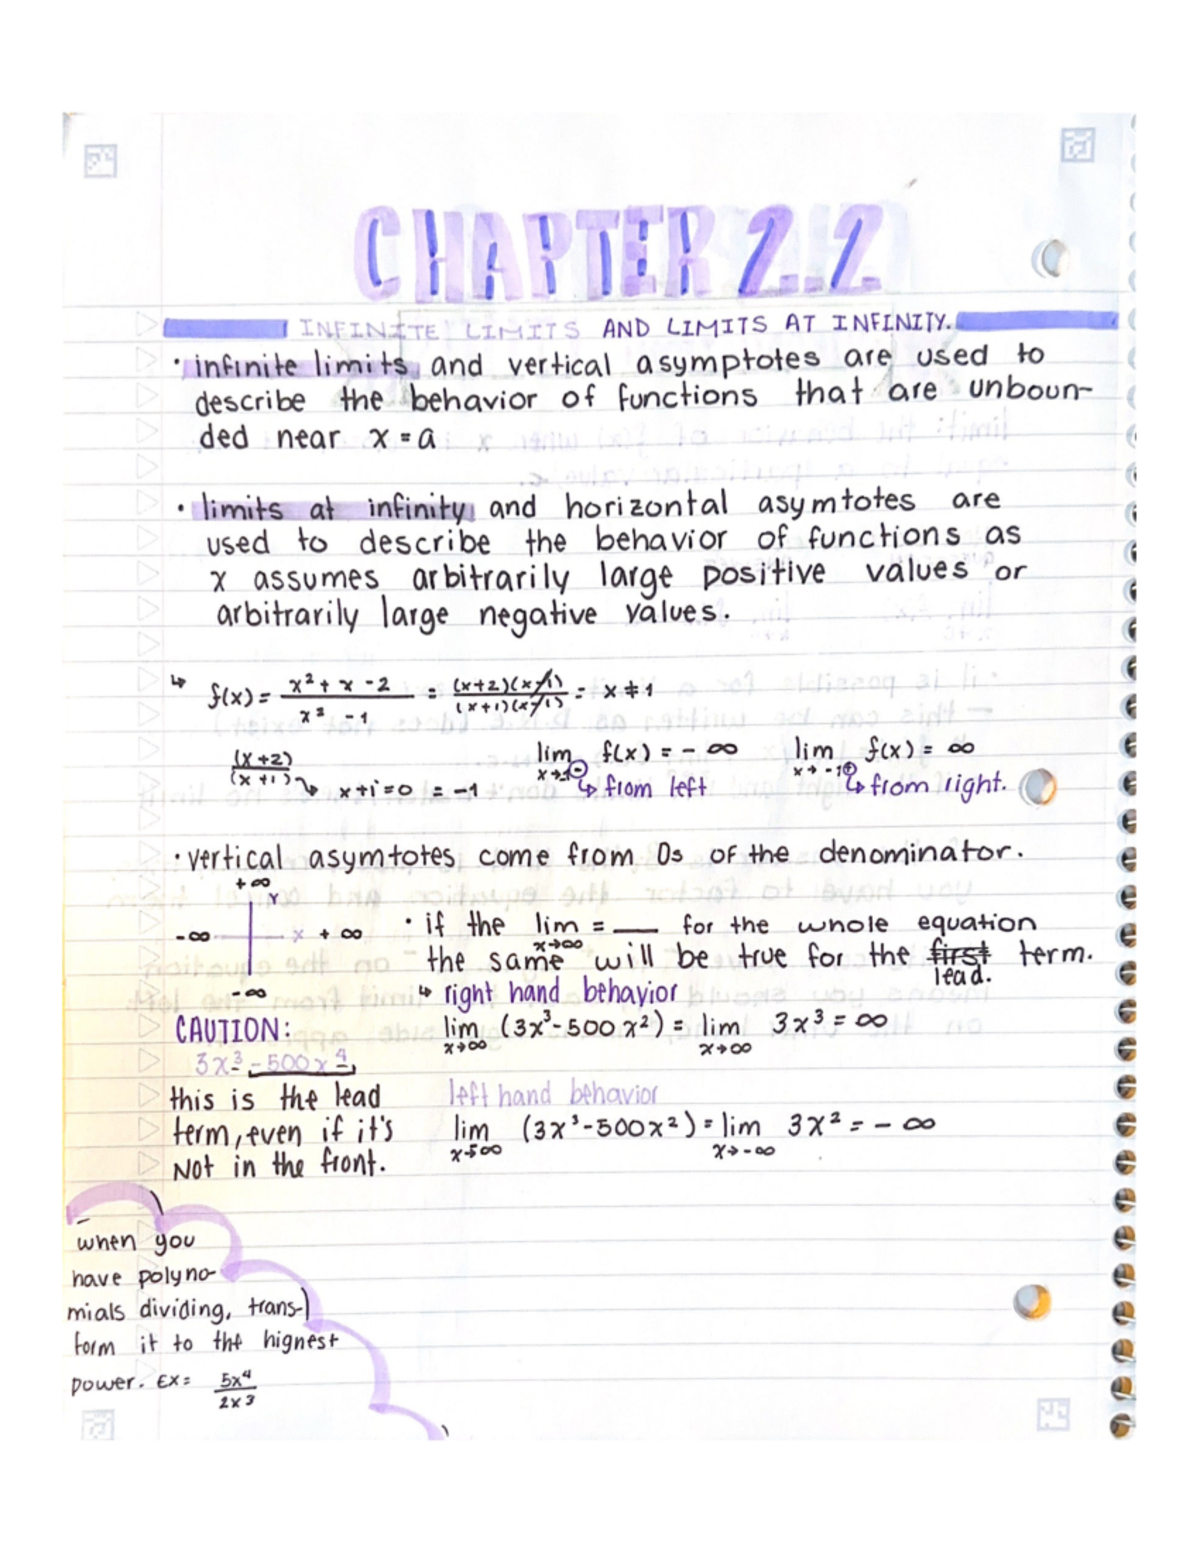 CHAPTER 2.2
INFINITE LIMITS AND LIMITS AT INFINITY.
· infinite limits and vertical asymptotes are used to
describe the behavior of functions that are unboun-
ded near x = a
· limits at infinity and horizontal asymtotes are
used to describe the behavior of functions as
x assumes arbitrarily large positive values or
arbitrarily large negative values.
↳ f(x) = x² + x - 2 / x² - 1 = (x+2)(x-1) / (x+1)(x-1) = x ≠ 1
(x+2) / (x+1) ↳ x+1=0 = -1
lim x→-1⊖ f(x) = - ∞
↳ from left
lim x→-1⊕ f(x) = ∞
↳ from right.
· vertical asymtotes come from 0s of the denominator.
+∞
Y
-∞ x +∞
-∞
· if the lim x→∞ = __ for the whole equation
the same will be true for the first term.
lead.
↳ right hand behavior
lim x→∞ (3x³-500x²) = lim x→∞ 3x³ = ∞
CAUTION:
3x³-500x⁴
this is the lead
term, even if it's
Not in the front.
left hand behavior
lim (3x³-500x²) = lim x→-∞ 3x² = - ∞
when you
have polyno-
mials dividing, trans-
form it to the highest
power. Ex= 5x⁴ / 2x3